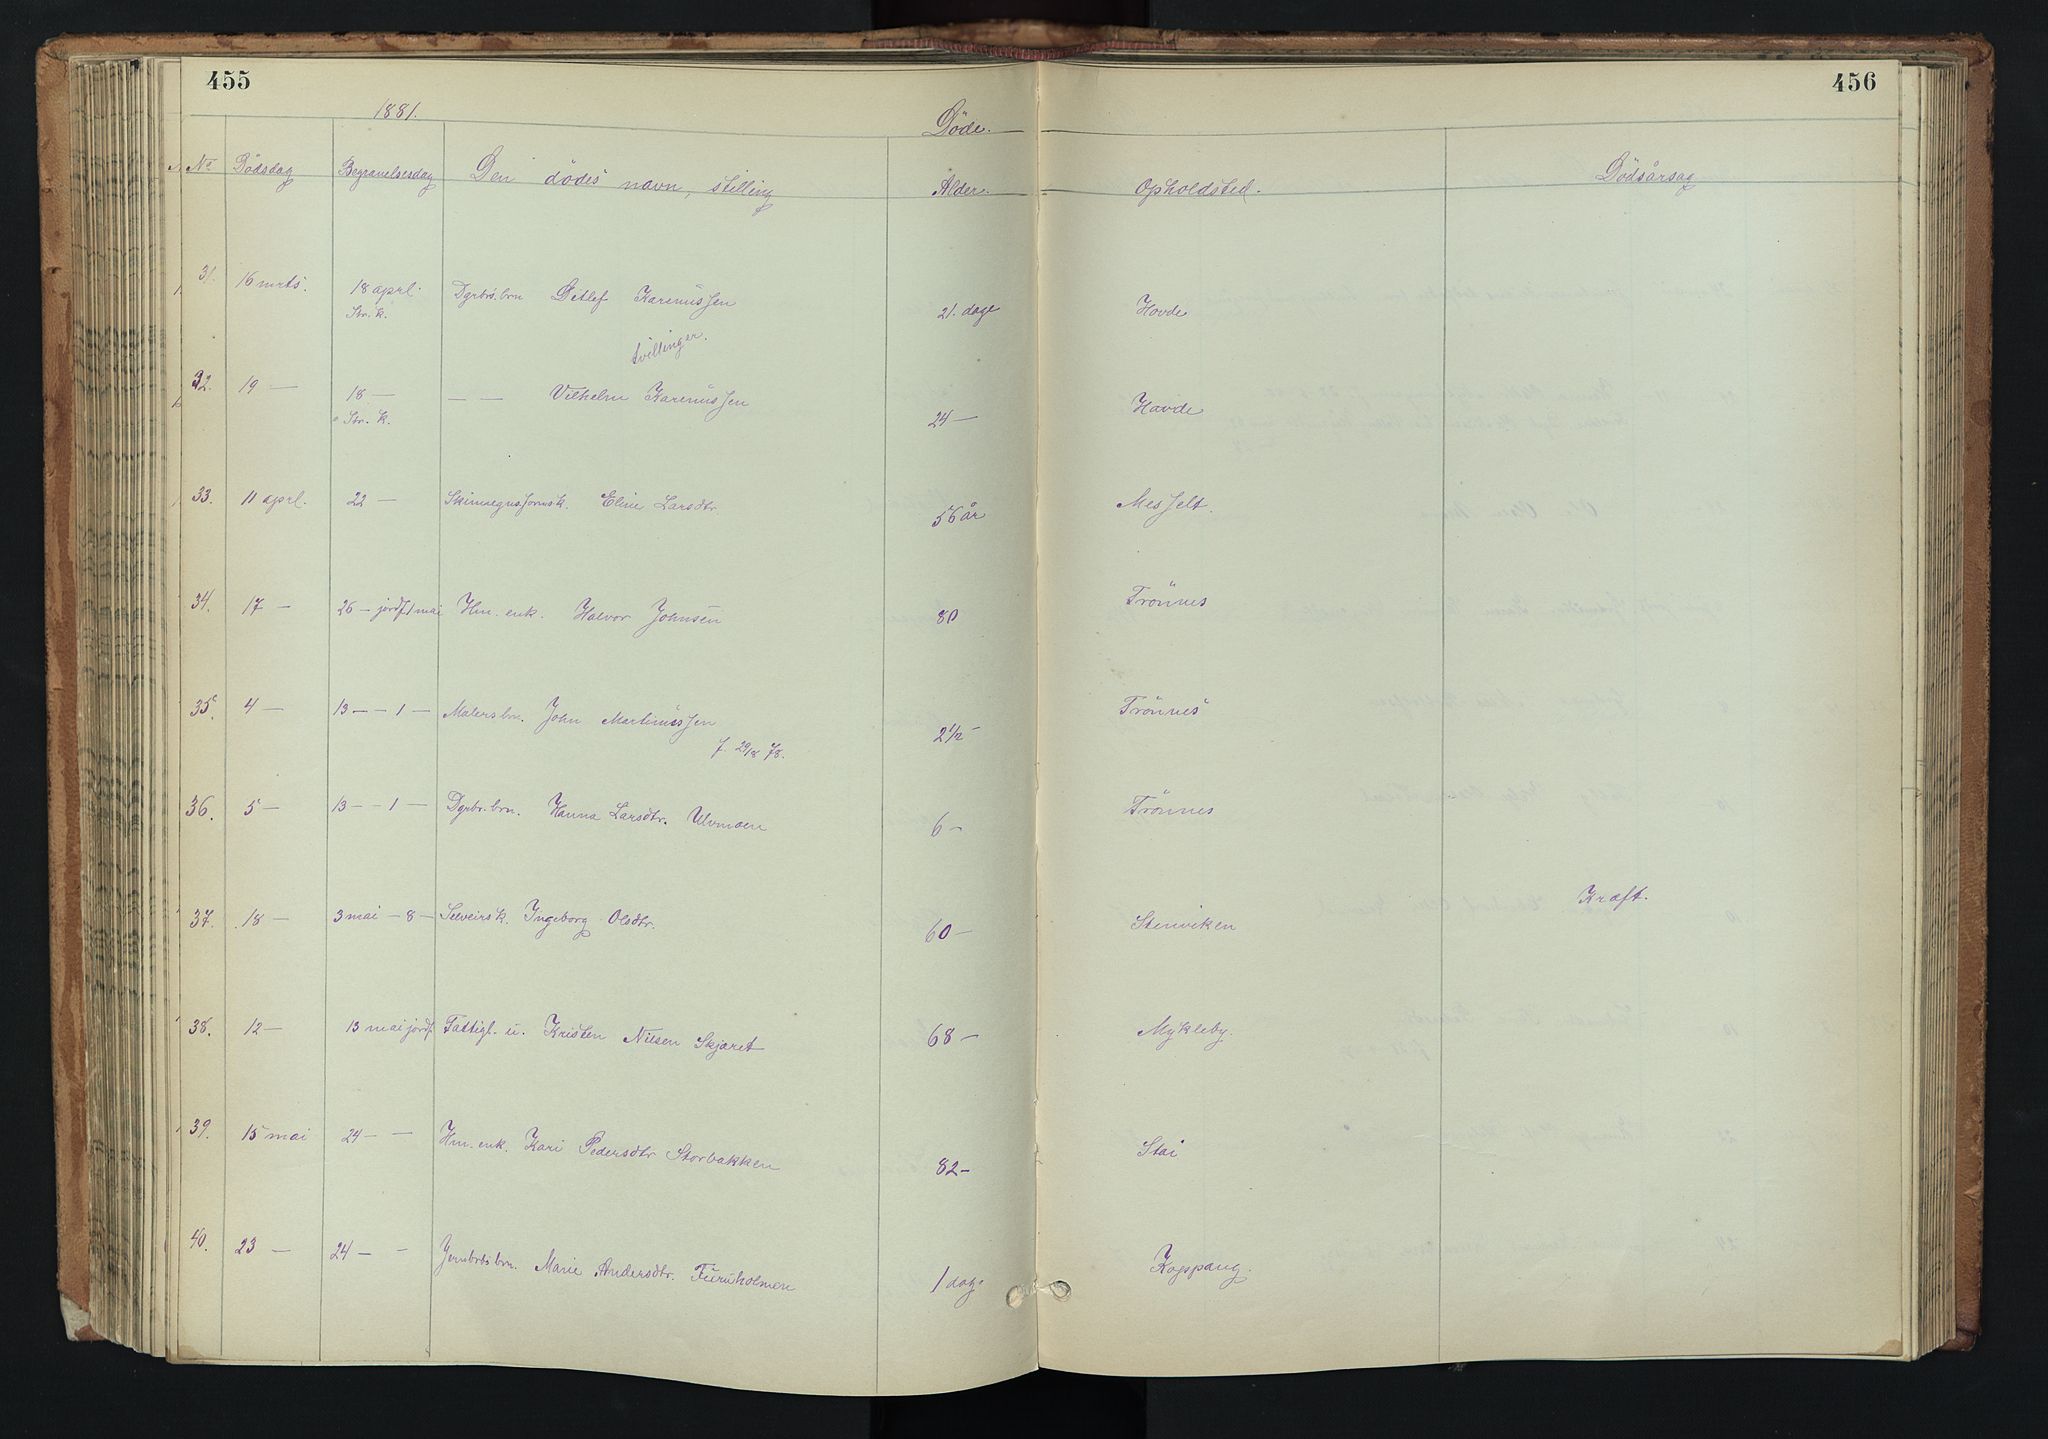 455
456
1881.
Döde.
No Dödsdag Begravelsesdag Den dödes navn, stilling Alder. Opholdsted. Dödsårsag
31. 16 mrts. 18 aprl. Dgrbrs.brn Detlef Karenussen 21. dage Hovde
Str. k.
tvillinger.
32. 19 — 18 — — — Vilhelm Karenussen 24 — Hovde
Str. k.
33. 11 aprl. 22 — Eline Larsdtr. 56 år Messelt.
34. 17 — 26 — jordf. 1 mai Hm. enk. Halvor Johnsen 80 Trönnes
35. 4 — 13 — — 1 — Malersbn. John Martinussen 2 1/2 — Trönnes
f. 29/8 78.
36. 5 — 13 — — 1 — Dgrbr. brn. Hanna Larsdtr. Ulvmoen 6 — Trönnes
37. 18 — 3 mai — 8 — Selveirsk. Ingeborg Olsdtr. 60 — Stenviken Kræft.
38. 12 — 13 mai jordf. Fattigl. u. Kristen Nilsen Skjæret 68 — Mykleby.
39. 15 mai 24 — — Hm. enk. Kari Pedersdtr Storbakken 82 — Stai
40. 23 — 24 — — Jernbrbsbrn. Marie Andersdtr. Furuholmen 1 dage Kogspang.